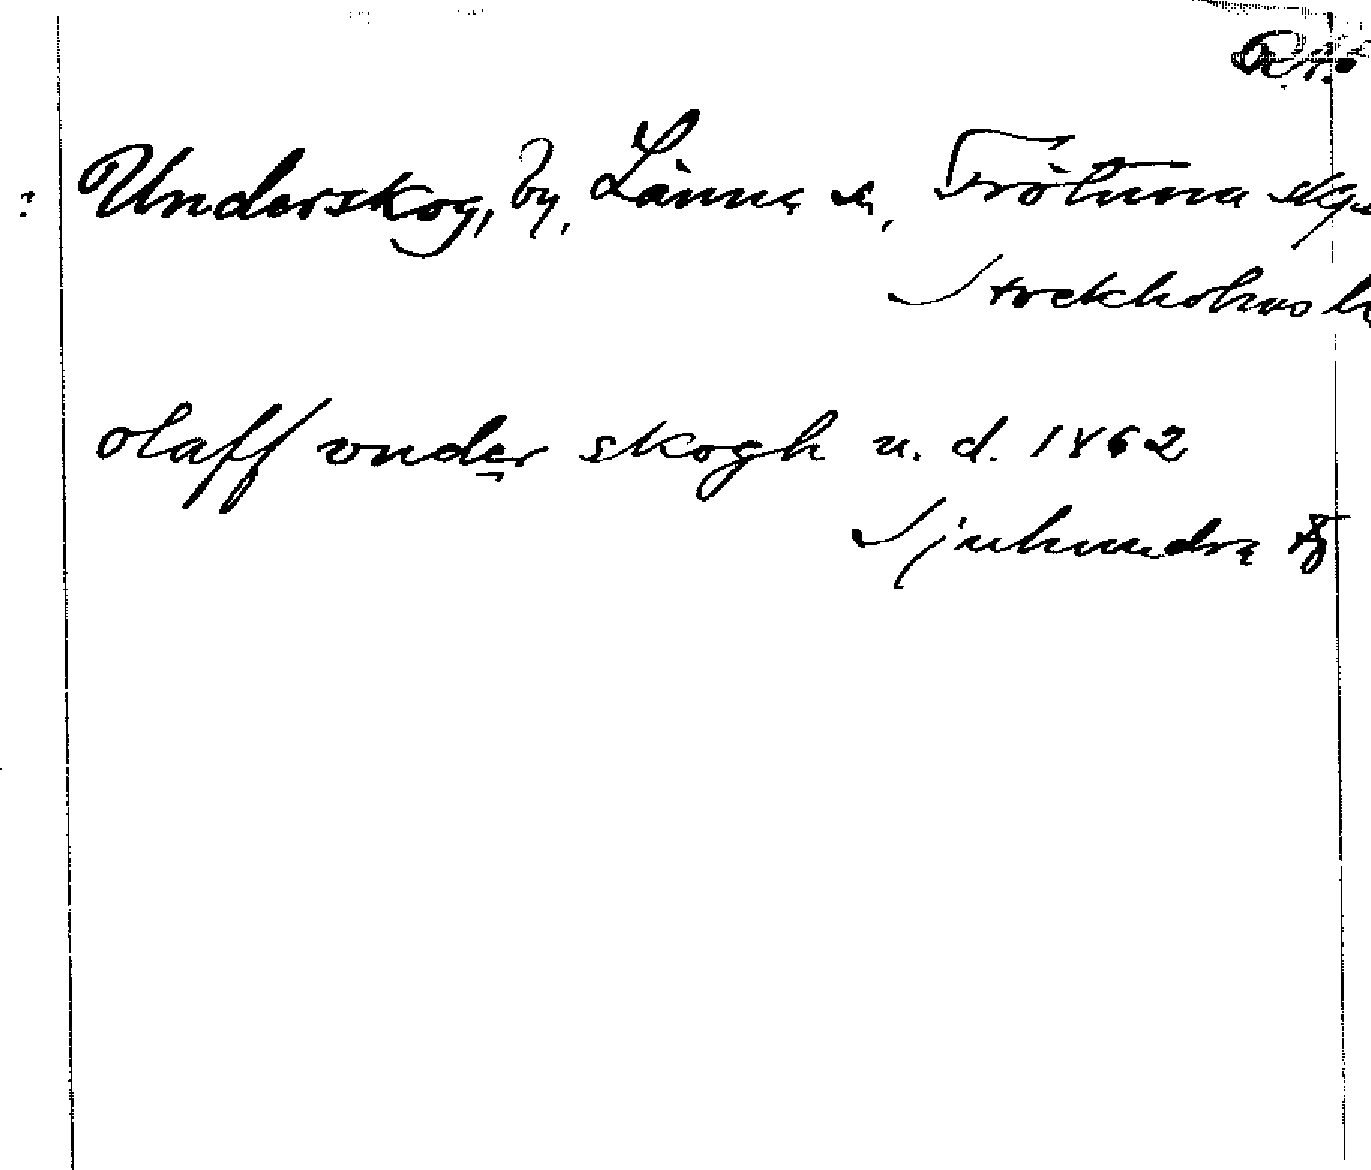 Underskog, by, Länna sn, Frötuna skg
Stockholms l
olaff vnder skogh u. d. 1462
Sjuhundra